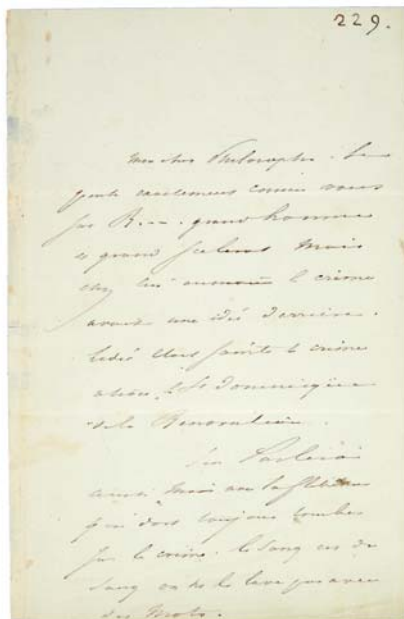 229.
Mon cher Philosophe. Je
pense exactement comme vous
sur R... grand homme
et grand scélérat mais
chez lui le crime
avait une idée derrière.
L'idée était sainte le crime
atroce, le St Dominique
de la Révolution.
J'en parlerai
aussi mais avec la
qui doit toujours tomber
sur le crime. le sang est du
sang on ne le lave pas avec
des mots.